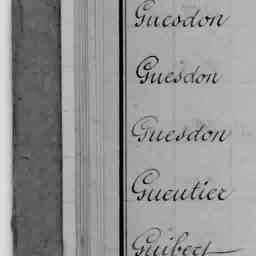 Guesdon
Guesdon
Guesdon
Gueutier
Guibert